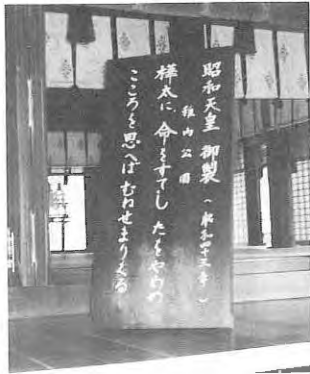 昭和天皇 御製 (昭和四十三年)
稚内公園
樺太に 命をすてし たをやめの
こころを思へば むねせまりくる